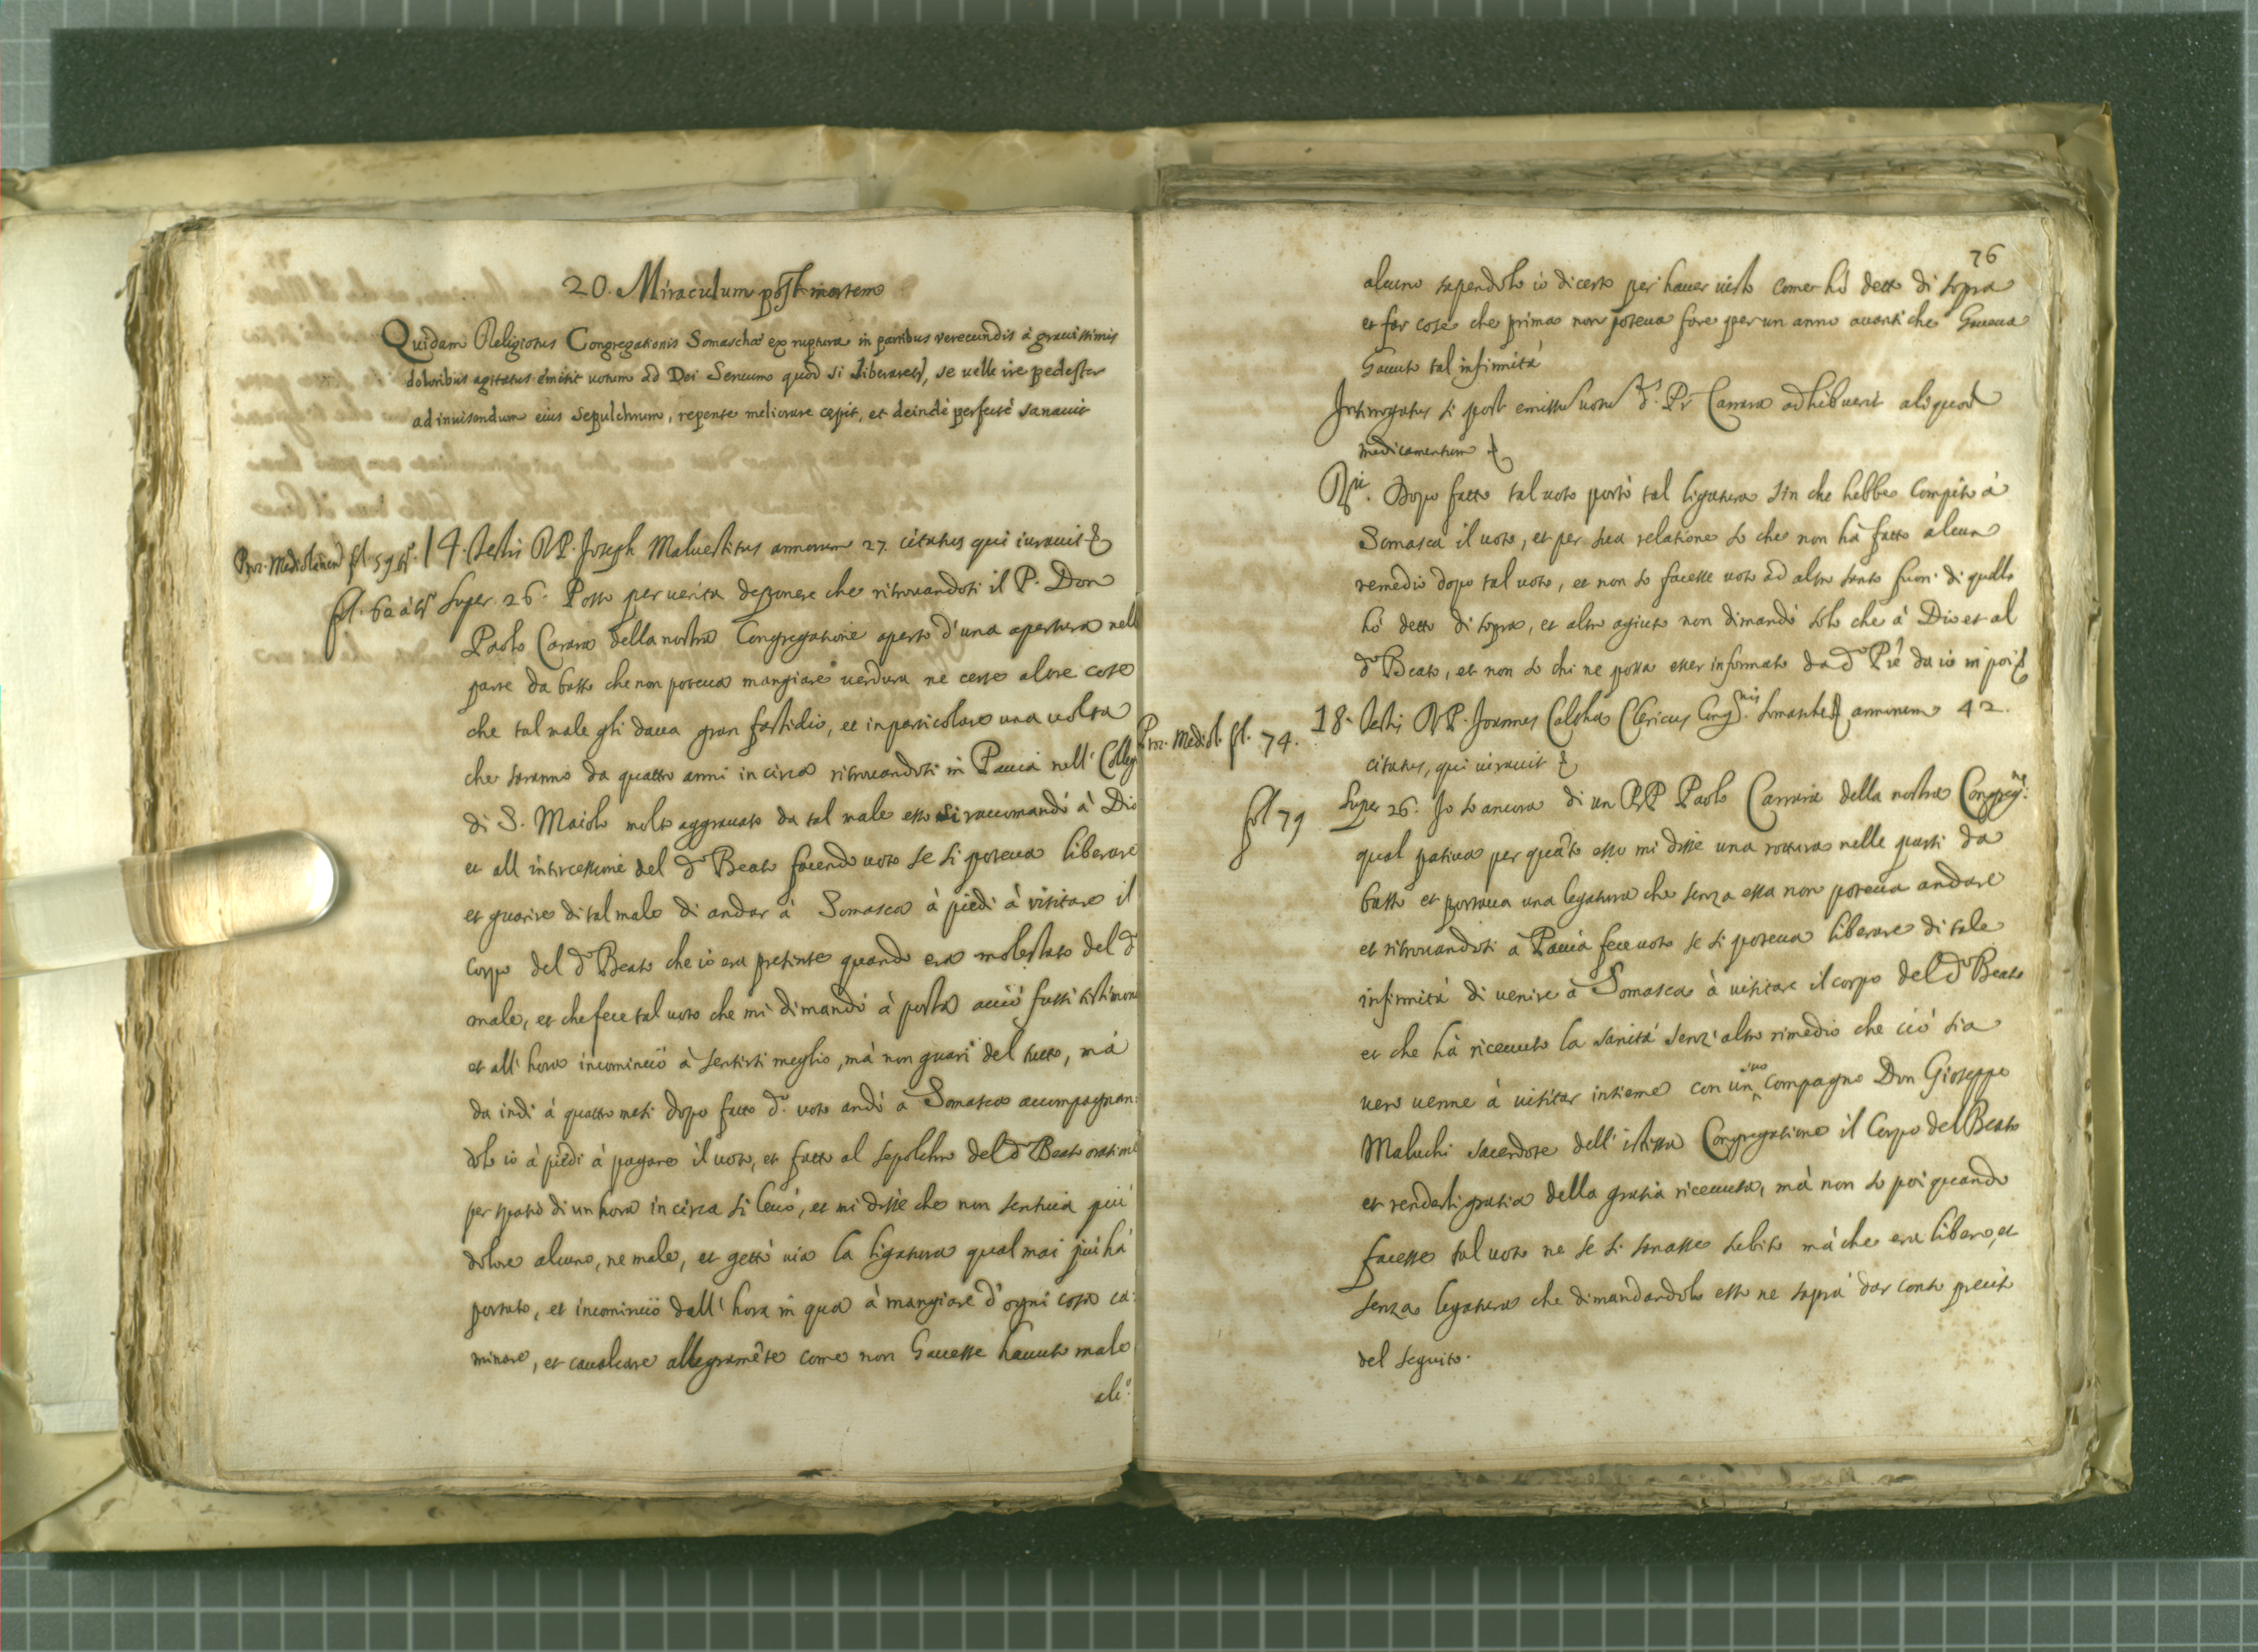 20. Miraculum post mortem
Quidam Religiosus Congregationis Somaschæ ex ruptura in partibus verecundis à grauissimis
doloribus agitatus emisit uotum ad Dei Seruum quod si liberaret, se uelle ire pedester
ad inuisendum eius sepulchrum, repente meliorare cepit, et deindè perfectè sanauit
Proc. Mediolanen fol. 59 14. Testis R.P. Joseph Maluestitus annorum 27. citatus qui iurauit &
fol. 60 à Super 26. Posso per uerita deponere che ritrouandosi il P. Don
Paolo Carara della nostra Congregatione aperto d'una apertura nell
parte da basso che non poteua mangiare uerdura ne certe altre cose
che tal male gli daua gran fastidio, et in particolare una uolta
che saranno da quattro anni in circa ritrouandosi in Pauia nell Colleg
di S. Maiolo molto aggrauato da tal male esso si raccomandò à Dio
et all intercessione del d.o Beato facendo uoto se si poteua liberare
et guarire di tal male di andar à Somasca à piedi à visitare il
corpo del d.o Beato che io era presente quando era molestato del d.o
male, et che fece tal uoto che mi dimandò à posta acciò fussi testimon
et all'hora incominciò à sentirsi meglio, mà non guarì del tutto, mà
da indi à quattro mesi dopo fatto d.o uoto andò a Somasca accompagnan:
dolo io à piedi à pagare il uoto, et fatto al sepolchro del d.o Beato oratione
per spatio di un hora in circa si leuò, et mi disse che non sentiua più
dolore alcuno, ne male, et gettò uia la ligatura qual mai più hà
portato, et incominciò dall'hora in quà à mangiare d'ogni cosa ca:
minare, et caualcare allegramēte come non hauesse hauuto male
alc.o
76
alcuno sapendolo io di certo per hauer uisto come hò detto di sopra
et far cose che prima non poteua fare per un anno auanti che haueua
hauuto tal infirmità
Interrogatus si post emissu uotu d.s Pr Carrara adhibuerit aliquod
medicamentum &
R. Dopo fatto tal uoto portò tal ligatura sin che hebbe compito à
Somasca il uoto, et per sua relatione so che non hà fatto alcun
remedio dopo tal uoto, et non so facesse uoto ad altro santo fuori di quello
hò detto di sopra, et altro agiuto non dimandò solo che à Dio et al
d.o Beato, et non so chi ne possa esser informato da d.o Prè da io in poi &
Proc. Mediol. fol. 74. 18. Testis R.P. Joannes Calcha Clericus Cong.nis Somasche annorum 42.
citatus, qui iurauit &
fol 79 Super 26. Jo so ancora di un R.P Paolo Carrara della nostra Congreg.ne
qual patiua per quāto esso mi disse una rottura nelle parti da
basso et portaua una legatura che senza essa non poteua andare
et ritrouandosi à Pauia fece uoto se si poteua liberare di tale
infirmità di uenire à Somasca à uisitare il corpo del d.o Beato
et che hà riceuuto la sanità senz'altro rimedio che ciò sia
uero uenne à uisitar insieme con un suo compagno Don Gioseppe
Maluchi sacerdote dell'istessa Congregatione il Corpo del Beato
et renderli gratia della gratia riceuuta, mà non so poi quando
facesse tal uoto ne se si sanasse subito mà che era libero, et
senza legatura che dimandandolo esso ne saprà dar conto
del seguito.